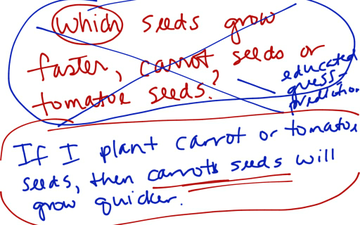 Which seeds grow
faster, carrot seeds or
tomatoe seeds?
educated
guess
prediction
If I plant carrot or tomatoe
seeds, then carrots seeds will
grow quicker.